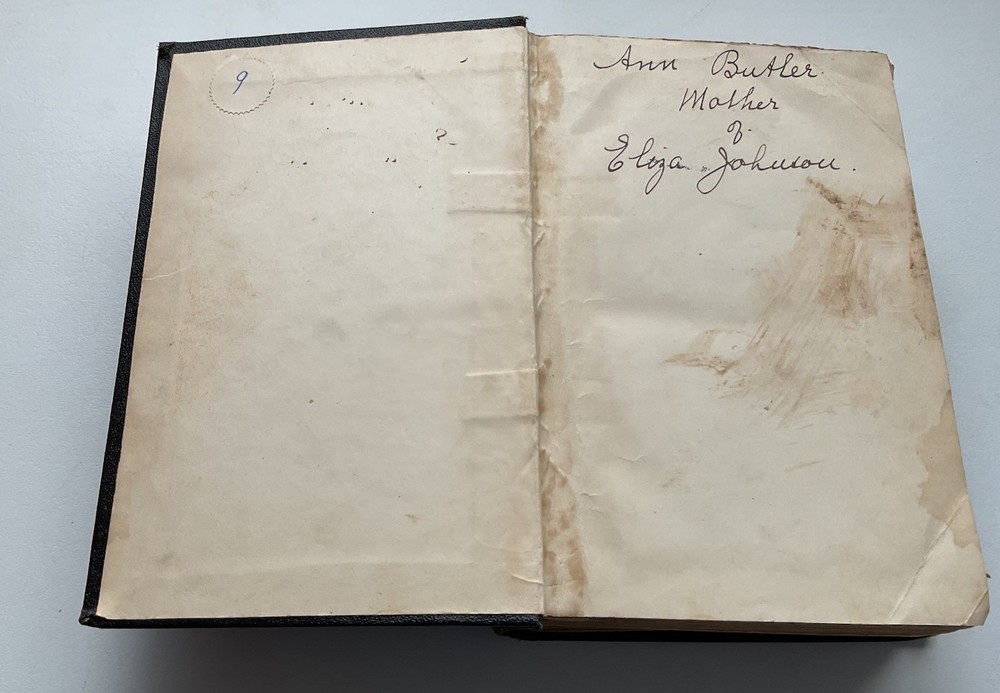 9
Ann Butler.
Mother
of
Eliza Johnson.